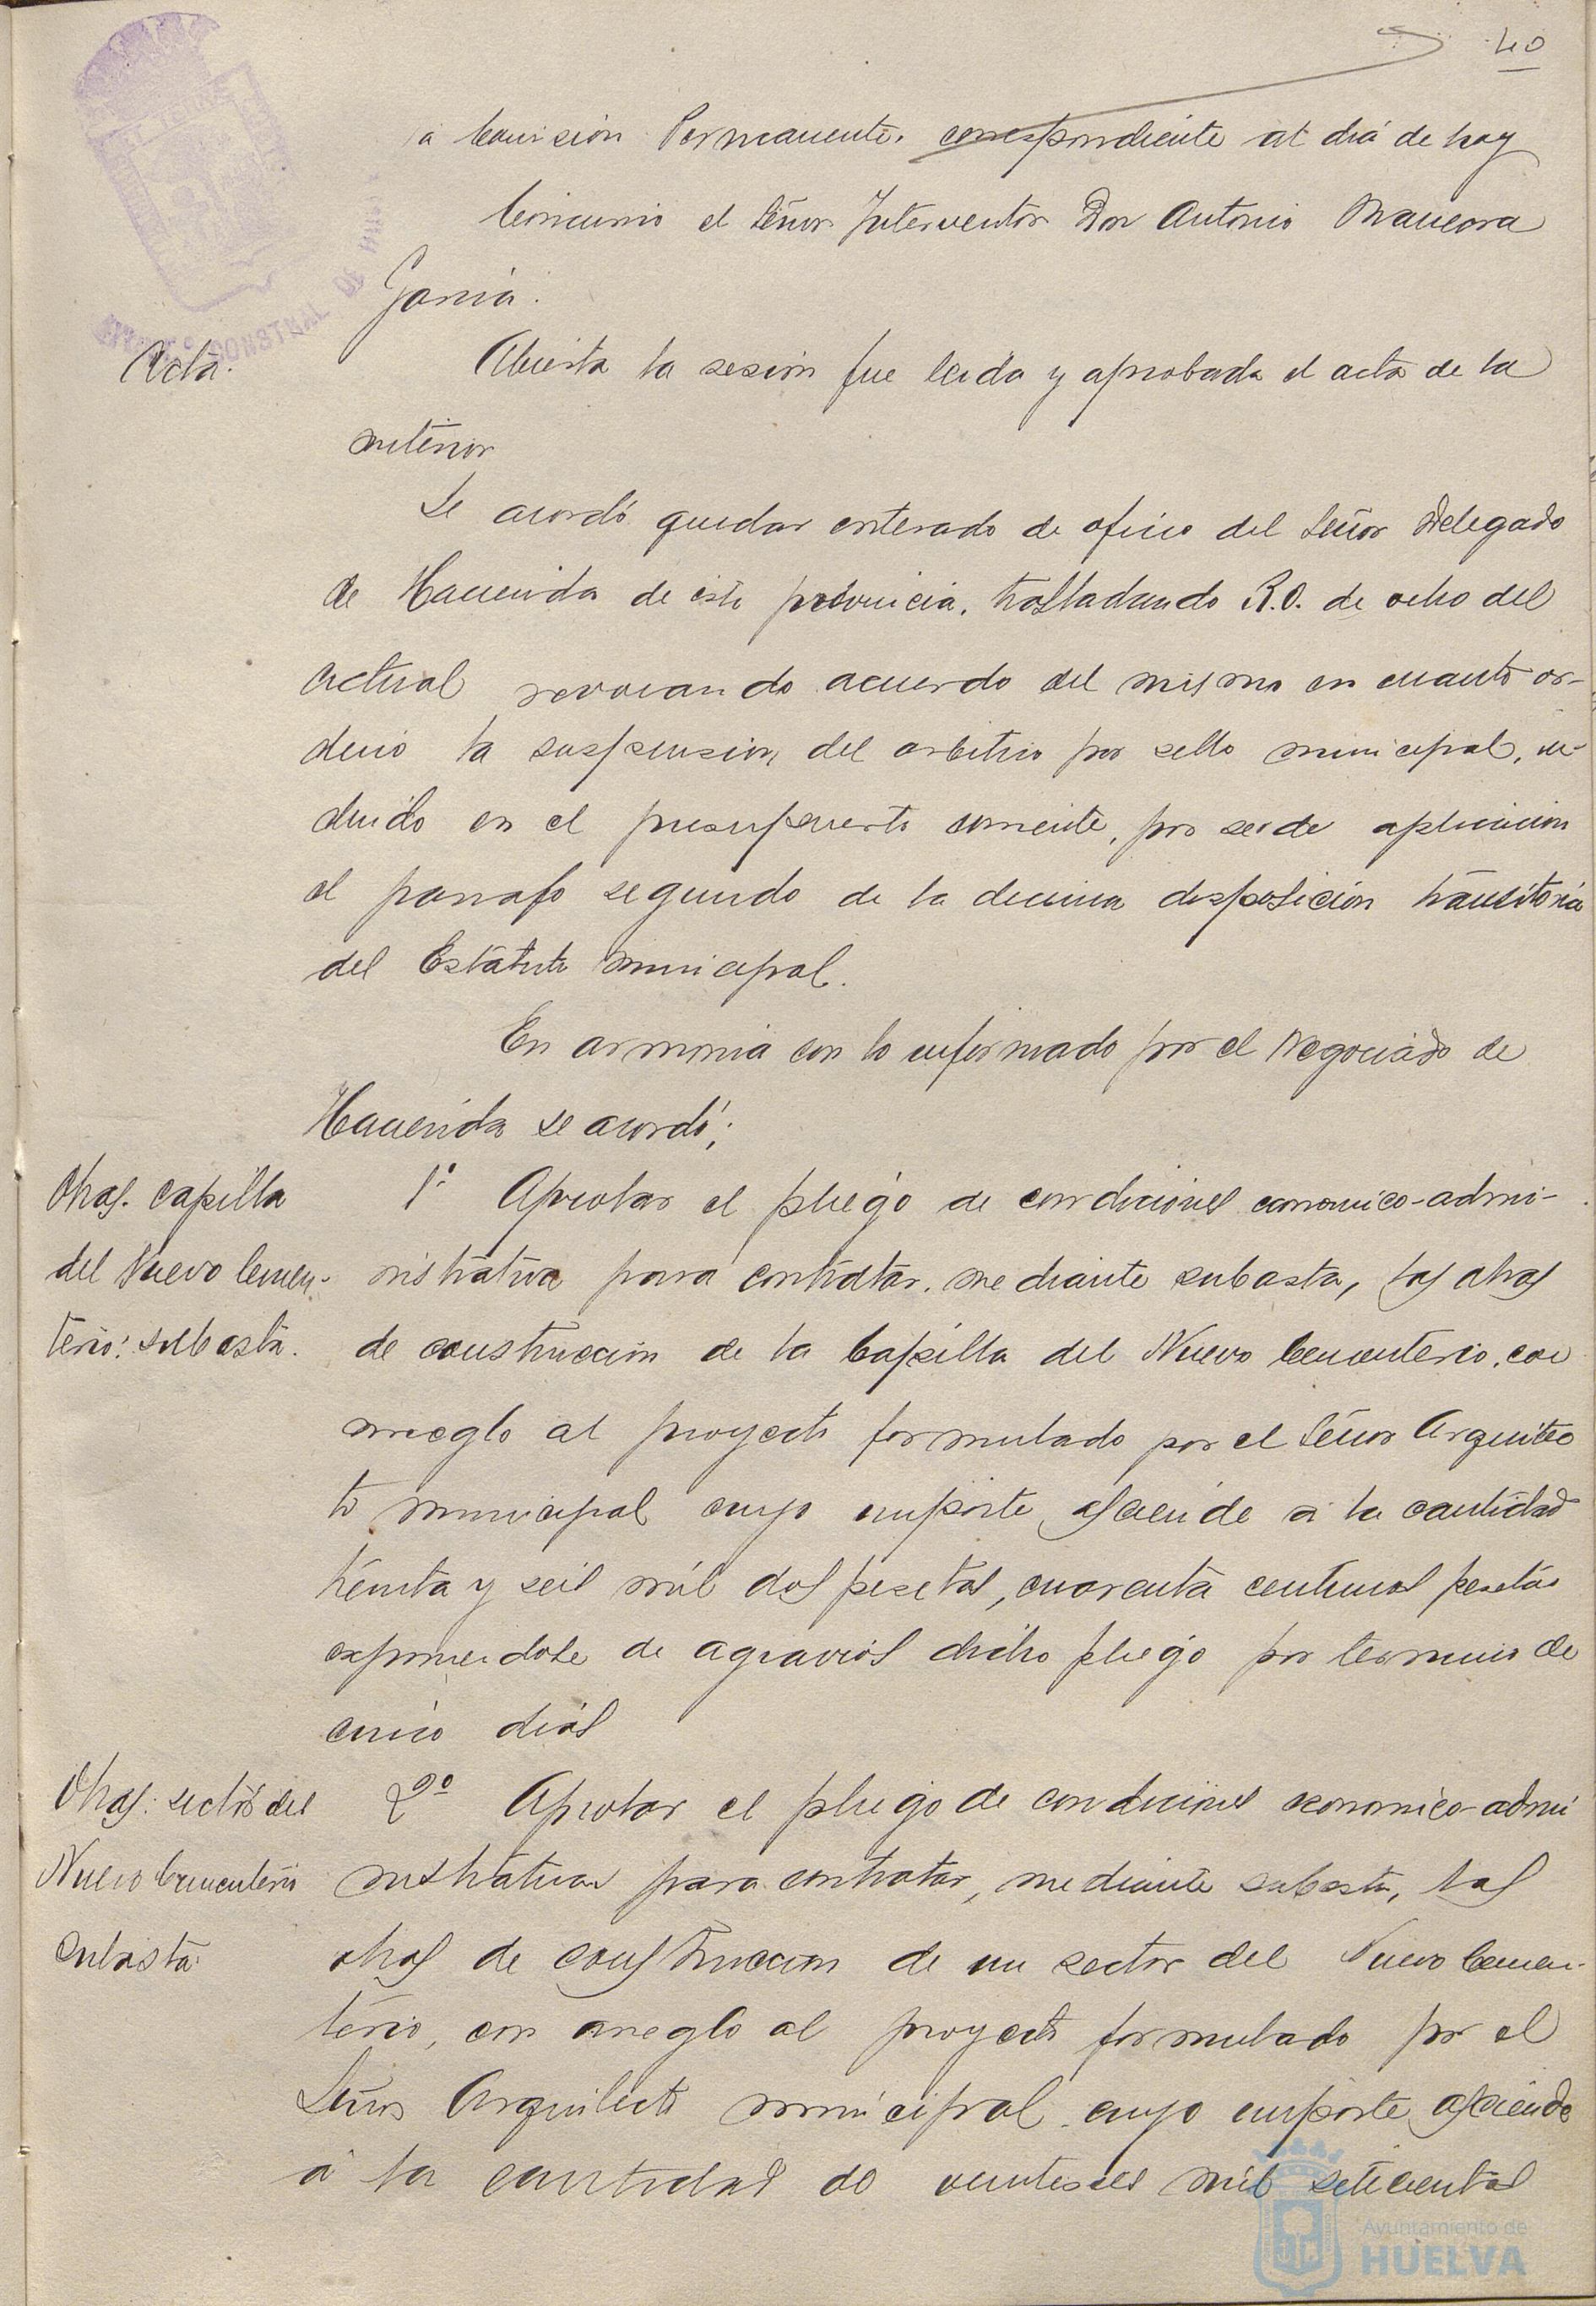 40
a Comisión Permanente, correspondiente al dia de hoy
Concurrio el Señor Interventor Don Antonio Mancera
Garcia.
Acta.
Abierta la sesion fue leida y aprobada el acta de la
anterior
Se acordó quedar enterado de oficio del Señor Delegado
de Hacienda de esta provincia, trasladando R.O. de ocho del
actual revocando acuerdo del mismo en cuanto or-
denó la suspension del arbitrio por sello municipal, in-
cluido en el presupuesto corriente, por ser de aplicacion
el parrafo segundo de la decima disposicion transitoria
del Estatuto municipal.
En armonia con lo informado por el Negociado de
Hacienda se acordó;
Obras. Capilla
del Nuevo Cemen-
terio: subasta.
1º Aprobar el pliego de condiciones economico-admi-
nistrativas para contratar, mediante subasta, las obras
de construccion de la Capilla del Nuevo Cementerio, con
arreglo al proyecto formulado por el Señor Arquitec
to municipal cuyo importe asciende a la cantidad
treinta y seis mil dos pesetas, cuarenta centimos pesetas
exponiendose de agravios dicho pliego por termino de
cinco dias
Obras: sector del
Nuevo Cementerio
Subasta.
2º Aprobar el pliego de condiciones economico-admi
nistrativas para contratar, mediante subasta, las
obras de construccion de un sector del Nuevo Cemen-
terio, con arreglo al proyecto formulado por el
Señor Arquitecto municipal cuyo importe asciende
á la cantidad de veintiseis mil setecientas
Ayuntamiento de
HUELVA